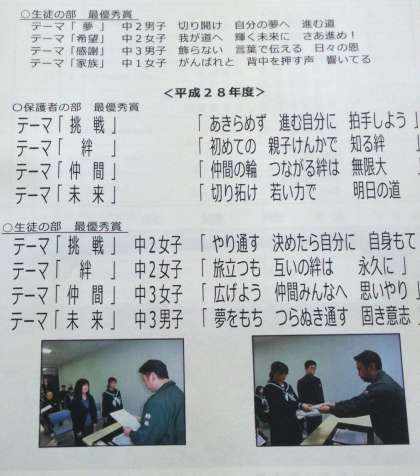 ○生徒の部　最優秀賞
テーマ「 夢 」　中２男子　切り開け　自分の夢へ　進む道
テーマ「希望」　中２女子　我が道へ　輝く未来に　さあ進め！
テーマ「感謝」　中３男子　飾らない　言葉で伝える　日々の恩
テーマ「家族」　中１女子　がんばれと　背中を押す声　響いてる
＜平成２８年度＞
○保護者の部　最優秀賞
テーマ「 挑 戦 」　「 あきらめず　進む自分に　拍手しよう 」
テーマ「　絆　」　「 初めての　親子けんかで　知る絆
テーマ「 仲 間 」　「 仲間の輪　つながる絆は　無限大
テーマ「 未 来 」　「 切り拓け　若い力で　明日の道
○生徒の部　最優秀賞
テーマ「 挑 戦 」　中２女子　「 やり通す　決めたら自分に　自身もて
テーマ「　絆　」　中２女子　「 旅立つも　互いの絆は　永久に 」
テーマ「 仲 間 」　中３女子　「 広げよう　仲間みんなへ　思いやり 」
テーマ「 未 来 」　中３男子　「 夢をもち　つらぬき通す　固き意志 」